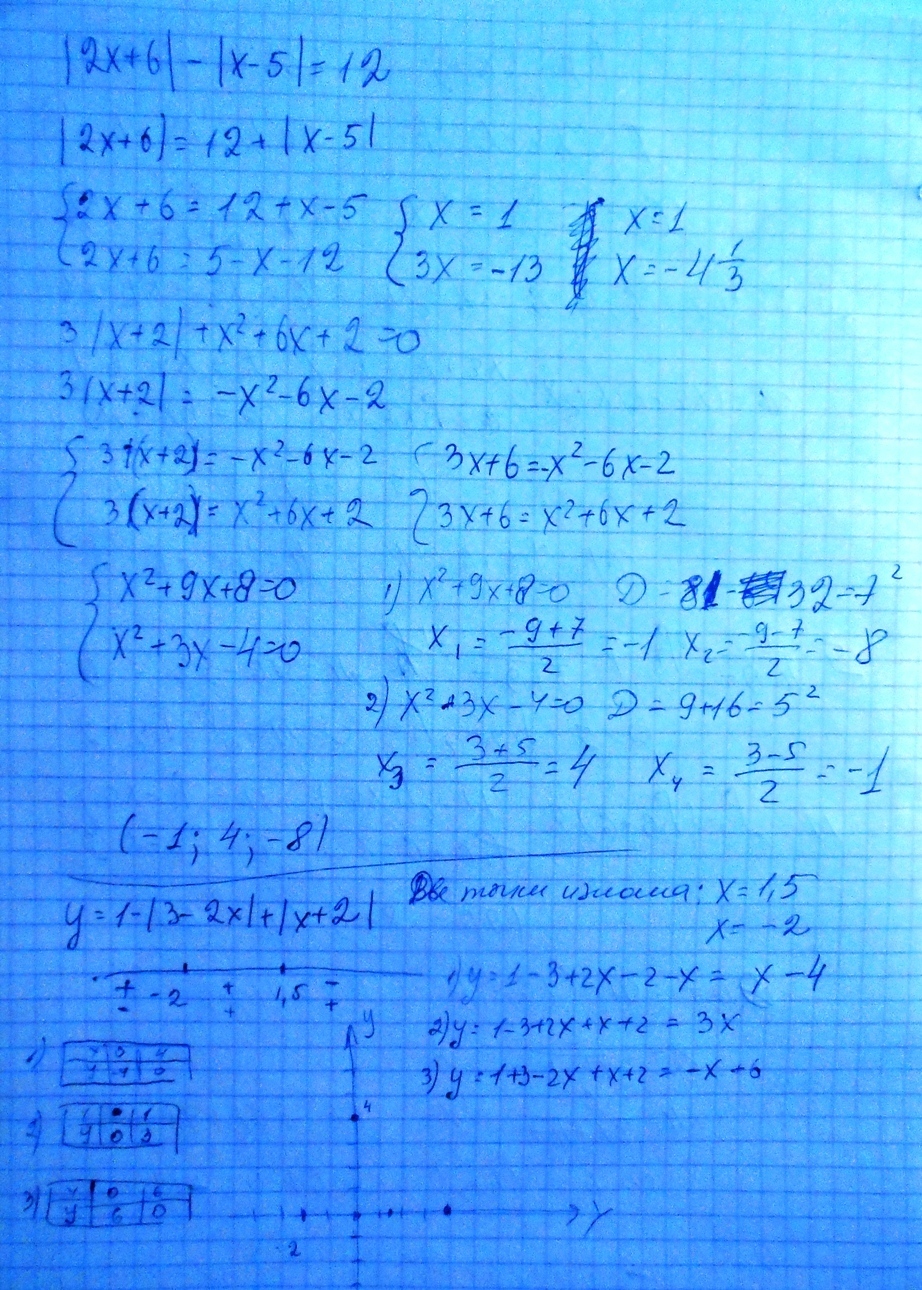 |2x+6| - |x-5| = 12
|2x+6| = 12 + |x-5|
{2x+6 = 12+x-5 {x = 1 x=1
{2x+6 = 5-x-12 {3x = -13 x = -4 1/3
3|x+2| + x²+6x+2=0
3|x+2| = -x²-6x-2
{3(x+2) = -x²-6x-2 {3x+6=-x²-6x-2
{3(x+2) = x²+6x+2 {3x+6 = x²+6x+2
{x²+9x+8=0 1) x²+9x+8=0 D=81-32=7²
{x²+3x-4=0 x₁ = (-9+7)/2 = -1 x₂ = (-9-7)/2 = -8
2) x²+3x-4=0 D=9+16=5²
x₃ = (3+5)/2 = 4 x₄ = (3-5)/2 = -1
(-1; 4; -8)
y = 1-|3-2x|+|x+2| Две точки излома: x=1,5
x= -2
+ -2 + 1,5 -
- + +
1) y = 1-3+2x-2-x = x-4
2) y = 1-3+2x+x+2 = 3x
3) y = 1+3-2x+x+2 = -x+6
y
1)
4
2)
y 0 3
3) 0 6
y 6 0
2